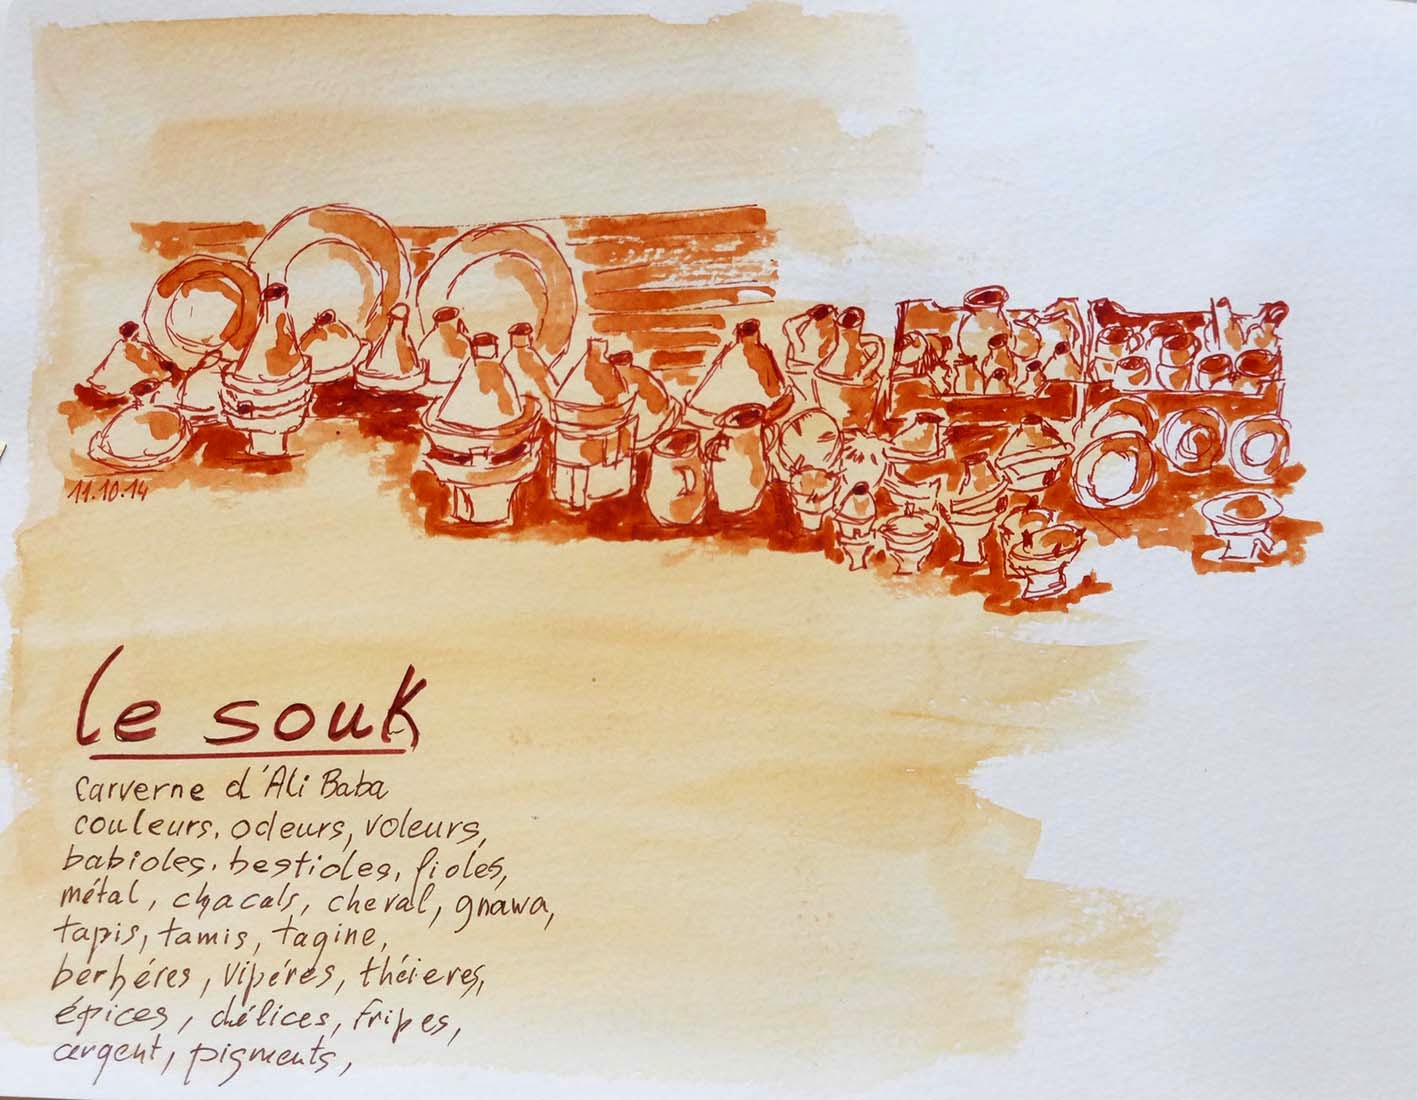 11.10.14
le souk
carverne d'Ali Baba
couleurs, odeurs, voleurs,
babioles, bestioles, fioles,
métal, chacals, cheval, gnawa,
tapis, tamis, tagine,
berbéres, vipéres, théieres,
épices, délices, fripes,
argent, pigments,